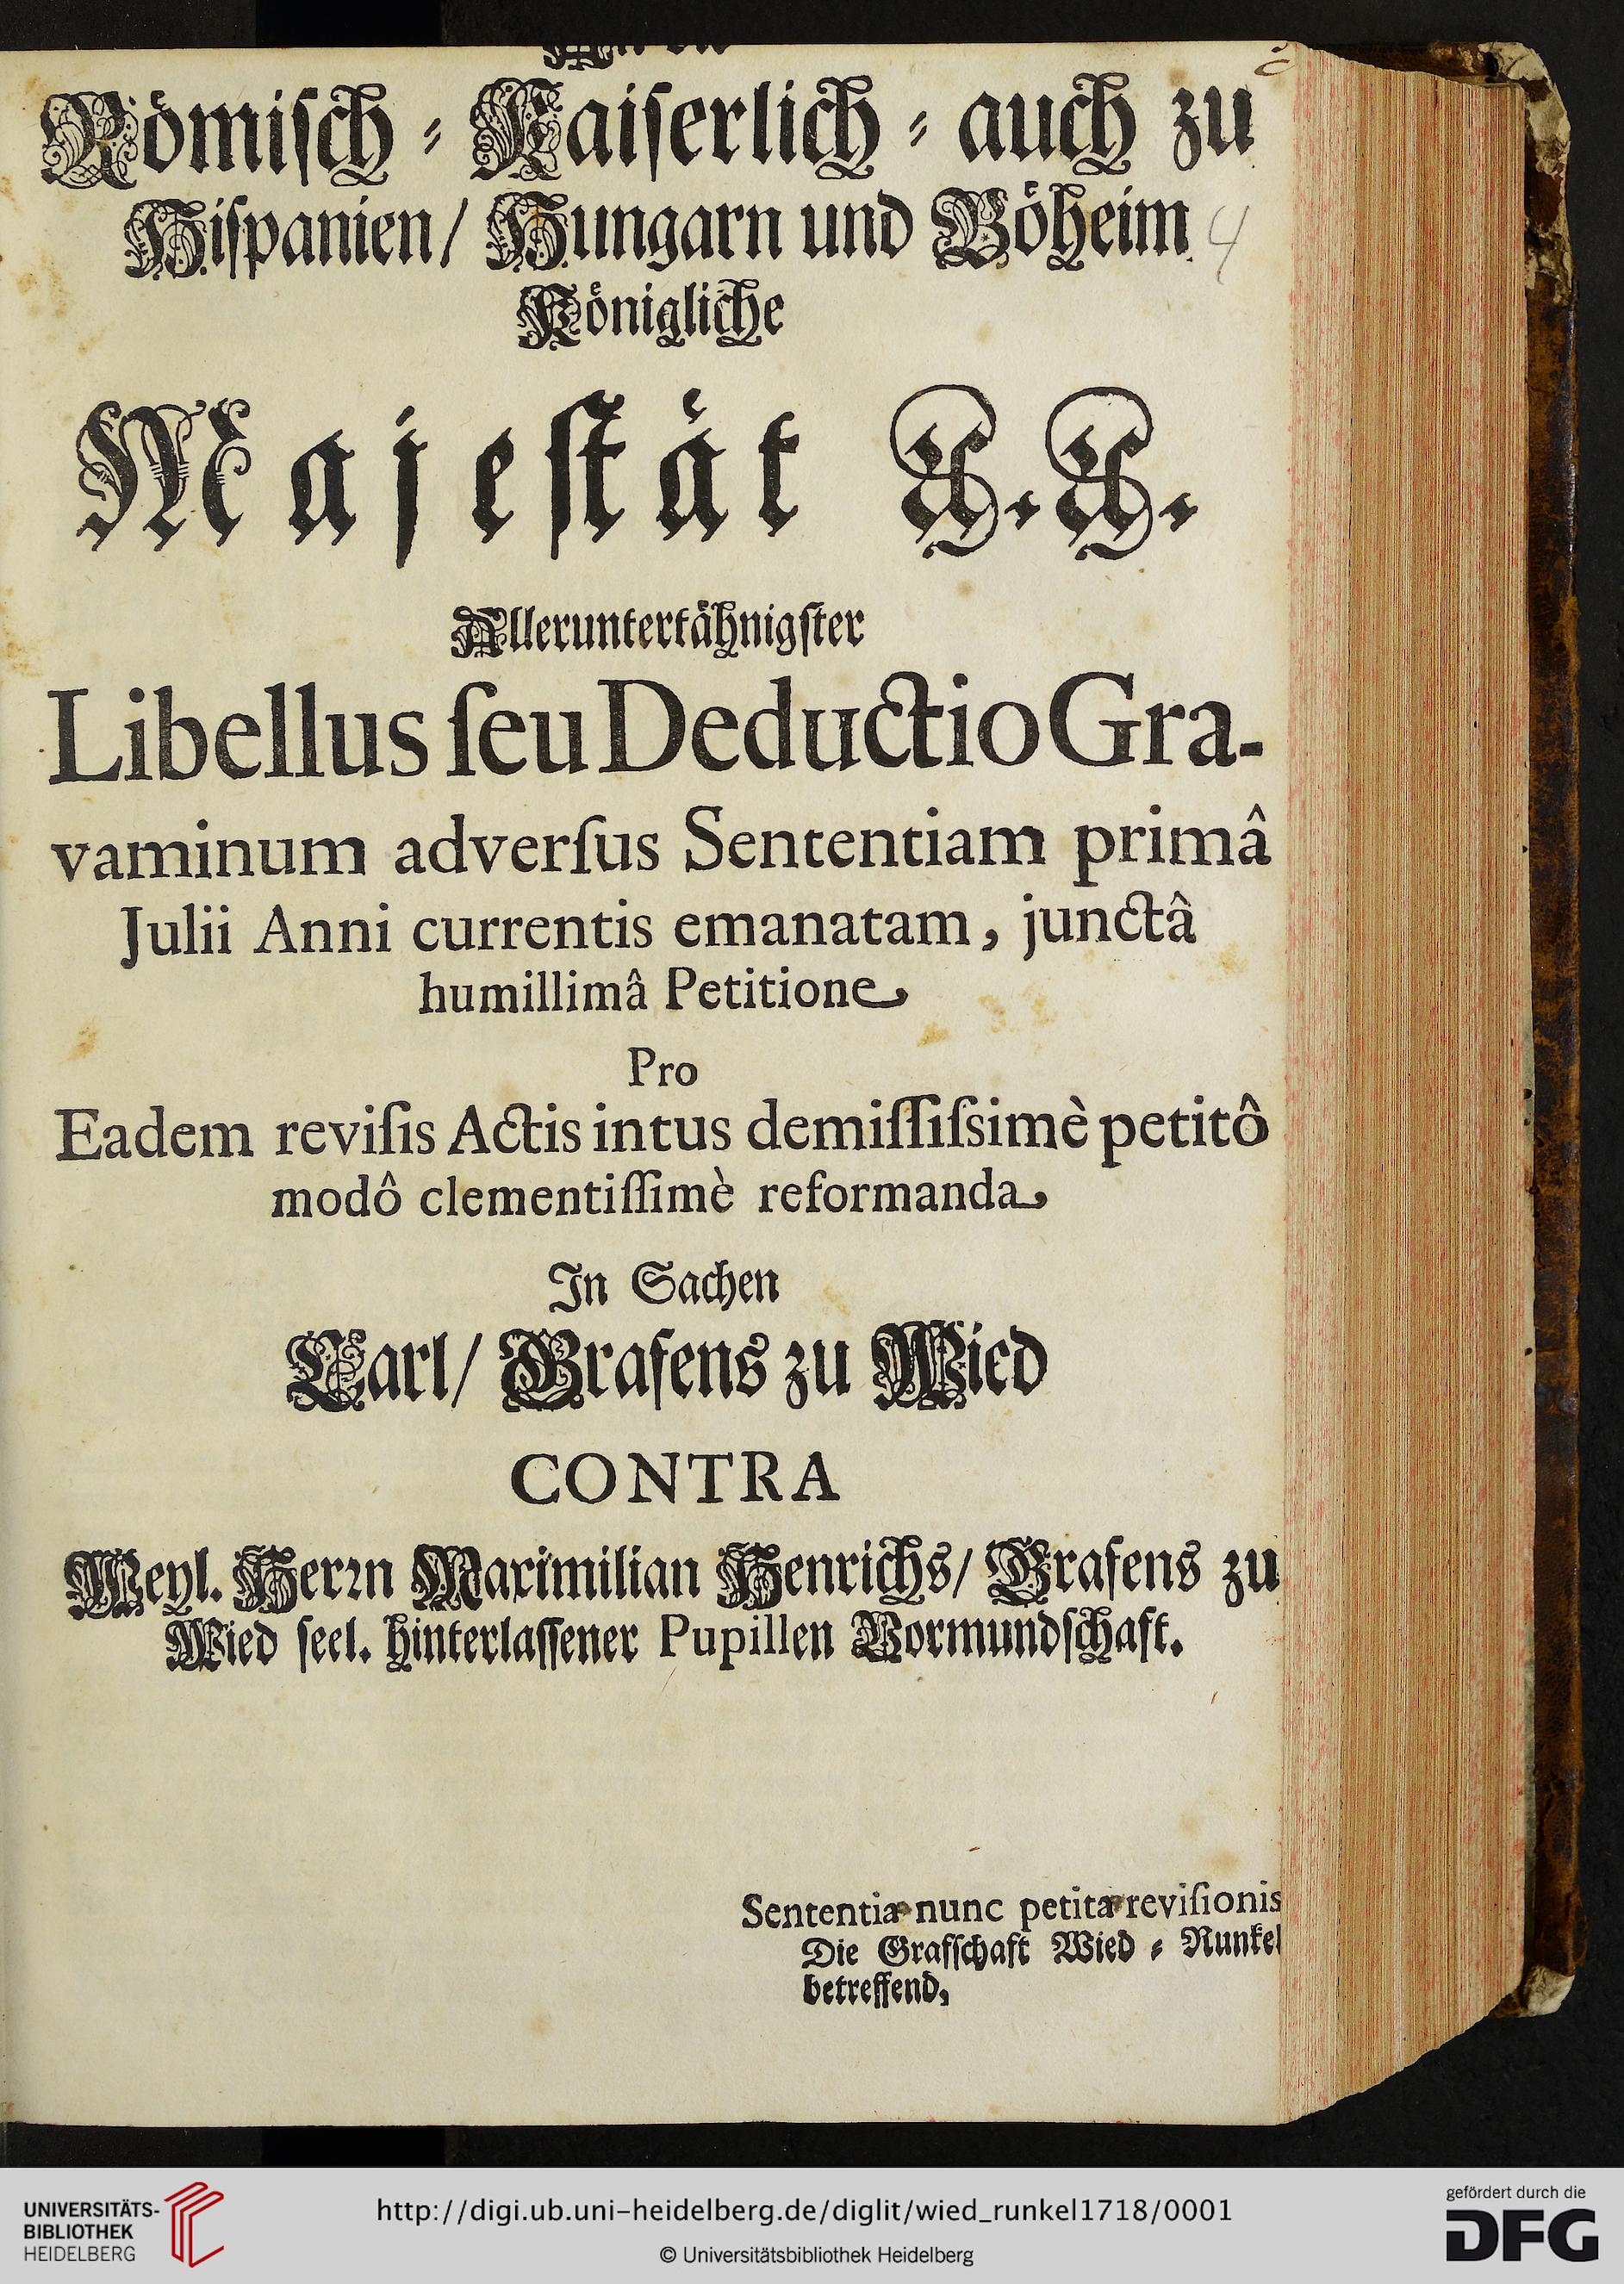 Römisch⸗ Kaiserlich⸗ auch zu
Hiſpanien/ Hungarn und Böheim 4
Königliche
Majeſtät ꝛc. ꝛc.
Alleruntertähnigſter
Libellus ſeu Deductio Gra-
vaminum adverſus Sententiam primâ
Julii Anni currentis emanatam, junctâ
humillimâ Petitione
Pro
Eadem reviſis Actis intus demiſſiſsimè petitô
modô clementiſſimè reformanda
In Sachen
Carl/ Grafens zu Wied
CONTRA
Weyl. Herꝛn Maximilian Henrichs/ Grafens zu
Wied ſeel. hinterlaſſener Pupillen Vormundſchaft.
Sententiæ nunc petitæ reviſionis
Die Grafſchaft Wied⸗Runkel
betreffend,
UNIVERSITÄTS-
BIBLIOTHEK
HEIDELBERG
http://digi.ub.uni-heidelberg.de/diglit/wied_runkel1718/0001
© Universitätsbibliothek Heidelberg
gefördert durch die
DFG